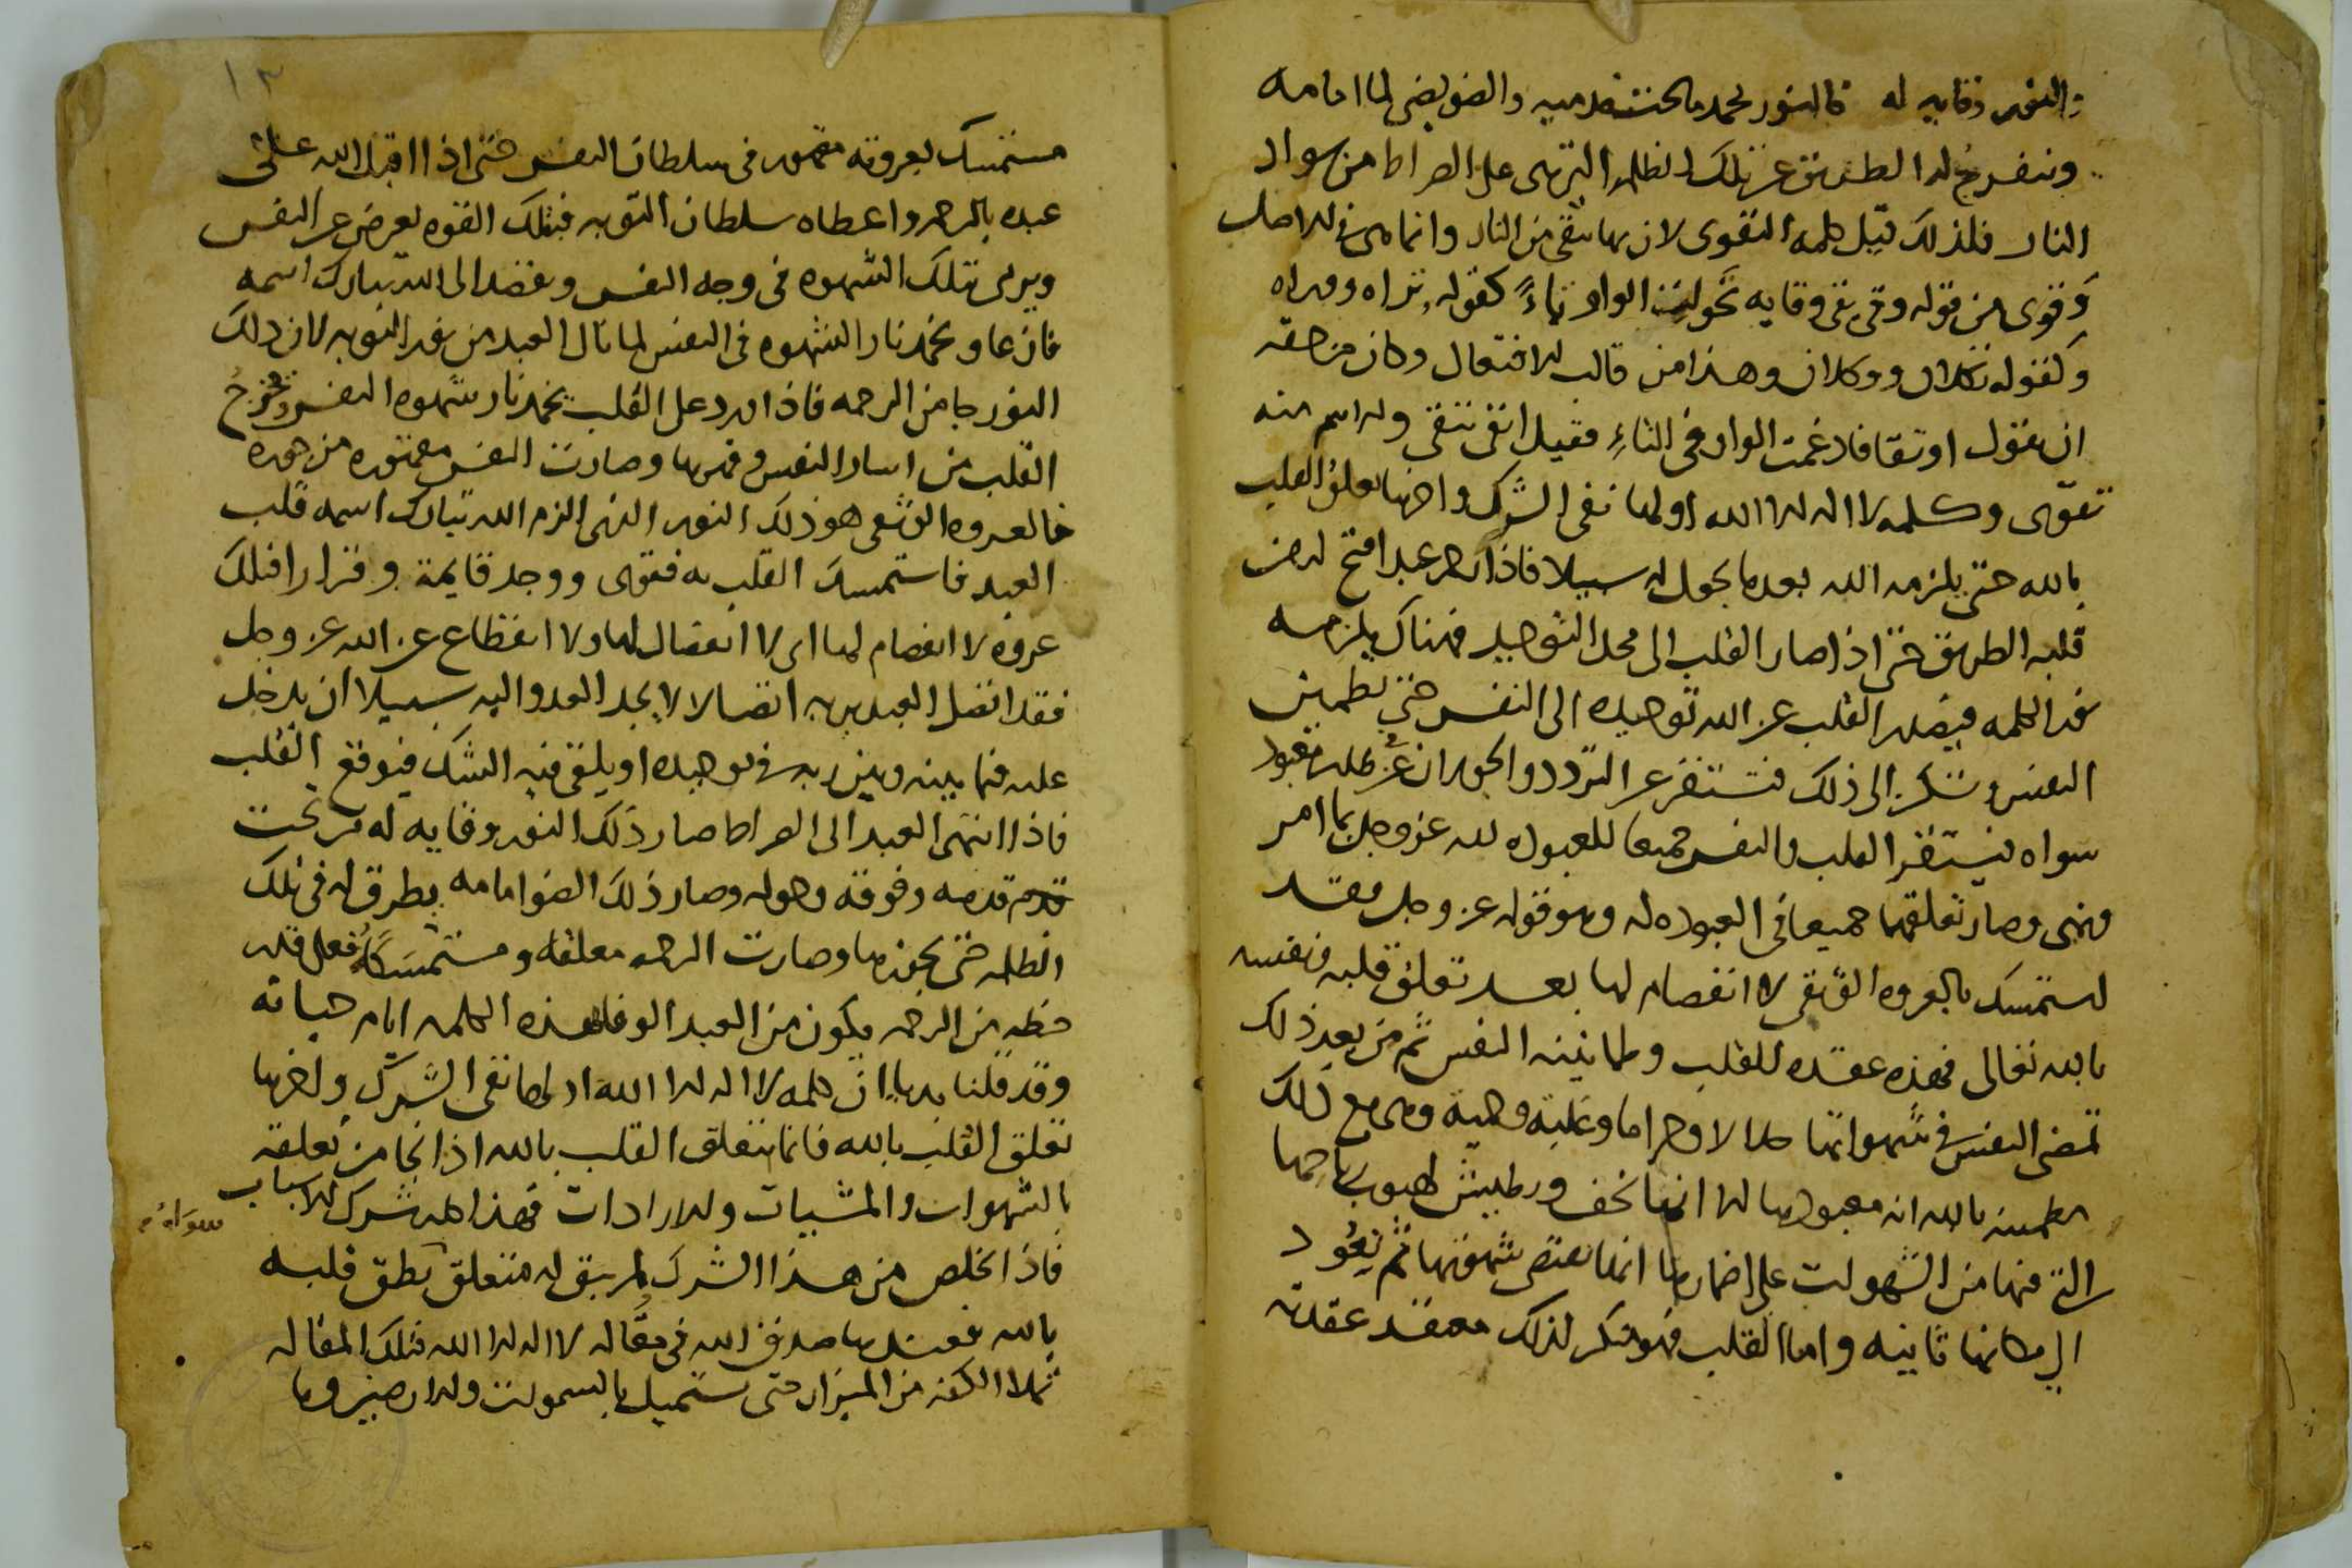 والنور وقايه له فالنور يخمد ما تحت قدميه والضو يضي لما امامه
وينفرج له الطريق عن تلك الظلمه التي هي على الصراط من سواد
النار فلذلك قيل كلمه التقوى لان بها يتقى من النار وانما هي في الاصل
وقوى من قوله وقى يقي وقايه تحولت الواو تاءً كقوله تراه ووراه
وكقوله تكلان ووكلان وهذا من قالب الافتعال وكان من حقه
ان يقول اوتقا فادغمت الواو في التاءِ فقيل اتقى يتقي والاسم منه
تقوى وكلمه لا اله الا الله اولها نفي الشرك واخرها تعلق القلب
بالله حتى يلزمه الله بعدما يجعل له سبيلا فاذا رحم عبدا فتح له من
قلبه الطريق حتى اذا صار القلب الى محل التوحيد فهناك يلزمه
نور الكلمه فيصدر القلب عن الله توحيده الى النفس حتى تطمين
النفس وتسكن الى ذلك فتستقر عن التردد والجولان عن طلب معبود
سواه فيستقر القلب والنفس جميعا للعبوده لله عز وجل بما امر
ونهى وصار تعلقهما جميعا في العبوده له وهو قوله عز وجل فقد
استمسك بالعروه الوثقى لا انفصام لها بعد تعلق قلبه ونفسه
بالله تعالى فهذه عقده للقلب وطمانينه النفس ثم من بعد ذلك
تمضي النفس في شهواتها حلالا وحراما وغلبة وهي مع ذلك
مطمينه بالله انه معبودها الا انها تخف وتطيش لهبوب رياحها
التي فيها من الشهوات على اضمارها انها تقتضي شهوتها ثم تعود
الى مكانها ثانيه واما القلب فهو منكر لذلك معتقد عقدته
١٣
مستمسك بعروته مقهور في سلطان النفس حتى اذا اقبل الله على
عبده بالرحمه واعطاه سلطان التوبه فبتلك القوه يعرض عن النفس
ويرمي بتلك الشهوه في وجه النفس ويقصد الى الله تبارك اسمه
فازعا ويخمد نار الشهوه في النفس لما نال العبد من نور التوبه لان ذلك
النور جا من الرحمه فاذا ورد على القلب يخمد نار شهوه النفس ويخرج
القلب من اسار النفس وقهرها وصارت النفس مقهوره من جهده
فالعروه الوثقى هو ذلك النور الذي الزم الله تبارك اسمه قلب
العبد فاستمسك القلب به فقوى ووجد قايمة وقرارا فتلك
عروه لا انفصام لها اي لا انفصال لها ولا انقطاع عن الله عز وجل
فقد اتصل العبد بربه اتصالا لا يجد العدو اليه سبيلا ان يدخل
عليه فيما بينه وبين ربه في توحيده او يلقى فيه الشك فيوقع القلب
فاذا انتهى العبد الى الصراط صار ذلك النور وقايه له من تحت
قدمه وفوقه وحوله وصار ذلك الضو امامه يطرق له في تلك
الظلمه حتى يجوزها وصارت الرحمه معلقه ومستمسكاً فعلى قدر
حظه من الرحمه يكون من العبد الوفا بهذه الكلمه ايام حياته
وقد قلنا بديا ان كلمه لا اله الا الله اولها نفي الشرك واخرها
تعلق القلب بالله فانما يتعلق القلب بالله اذا نجا من تعلقه
بالشهوات والمشيات والارادات فهذا كله شرك الاسباب
سواه
فاذا خلص من هذا الشرك لم يبق له متعلق نطق قلبه
بالله فعندها صدق الله في مقاله لا اله الا الله فتلك المقاله
تملا الكفه من الميزان حتى تستميل بالسموات والارضين وما